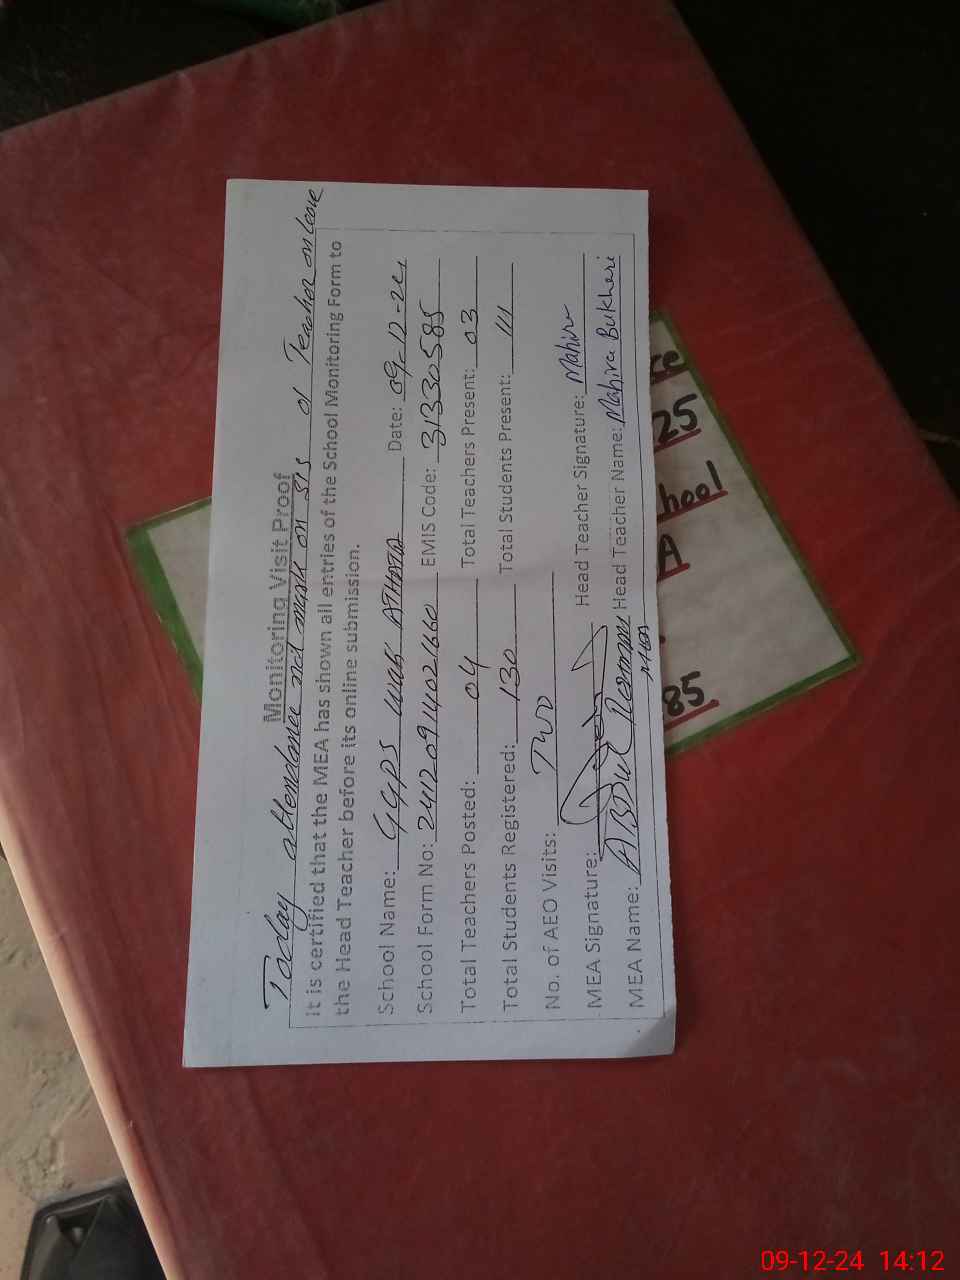 Monitoring Visit Proof
Today attendance not mark on SIS 01 Teacher on leave
It is certified that the MEA has shown all entries of the School Monitoring Form to
the Head Teacher before its online submission.
School Name: GGPS WAK ATHATA Date: 09-12-24
School Form No: 24120914021660 EMIS Code: 31330585
Total Teachers Posted: 04 Total Teachers Present: 03
Total Students Registered: 130 Total Students Present: 111
No. of AEO Visits: TWO
MEA Signature: Head Teacher Signature: Mahira
MEA Name: ABDUL Rehman Head Teacher Name: Mahira Bukhari
ce
25
hool
A
85
09-12-24 14:12